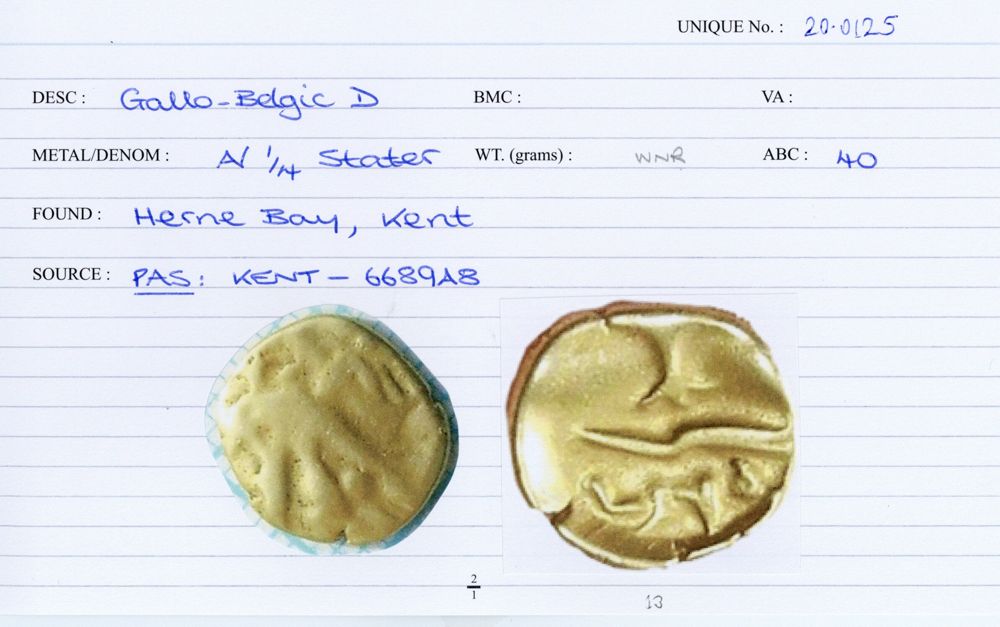 UNIQUE No. : 20.0125
DESC : Gallo-Belgic D BMC : VA :
METAL/DENOM : A/ 1/4 Stater WT. (grams) : WNR ABC : 40
FOUND : Herne Bay, Kent
SOURCE : PAS: KENT - 6689A8
2/1
13